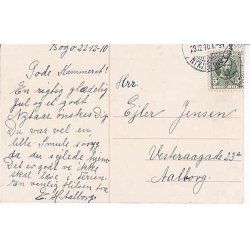 Bogø 22-12-10
Gode Kammerat!
En rigtig glædelig
Jul og et godt
Nytaar ønsker dig
Du var vel en
lille Smule
da du sejlede
Det er godt vi ikke
skal læse i Ferien.
En venlig Hilsen fra
E.
Hr.
Ejler Jensen
Vesteraagade 23²
Aalborg.